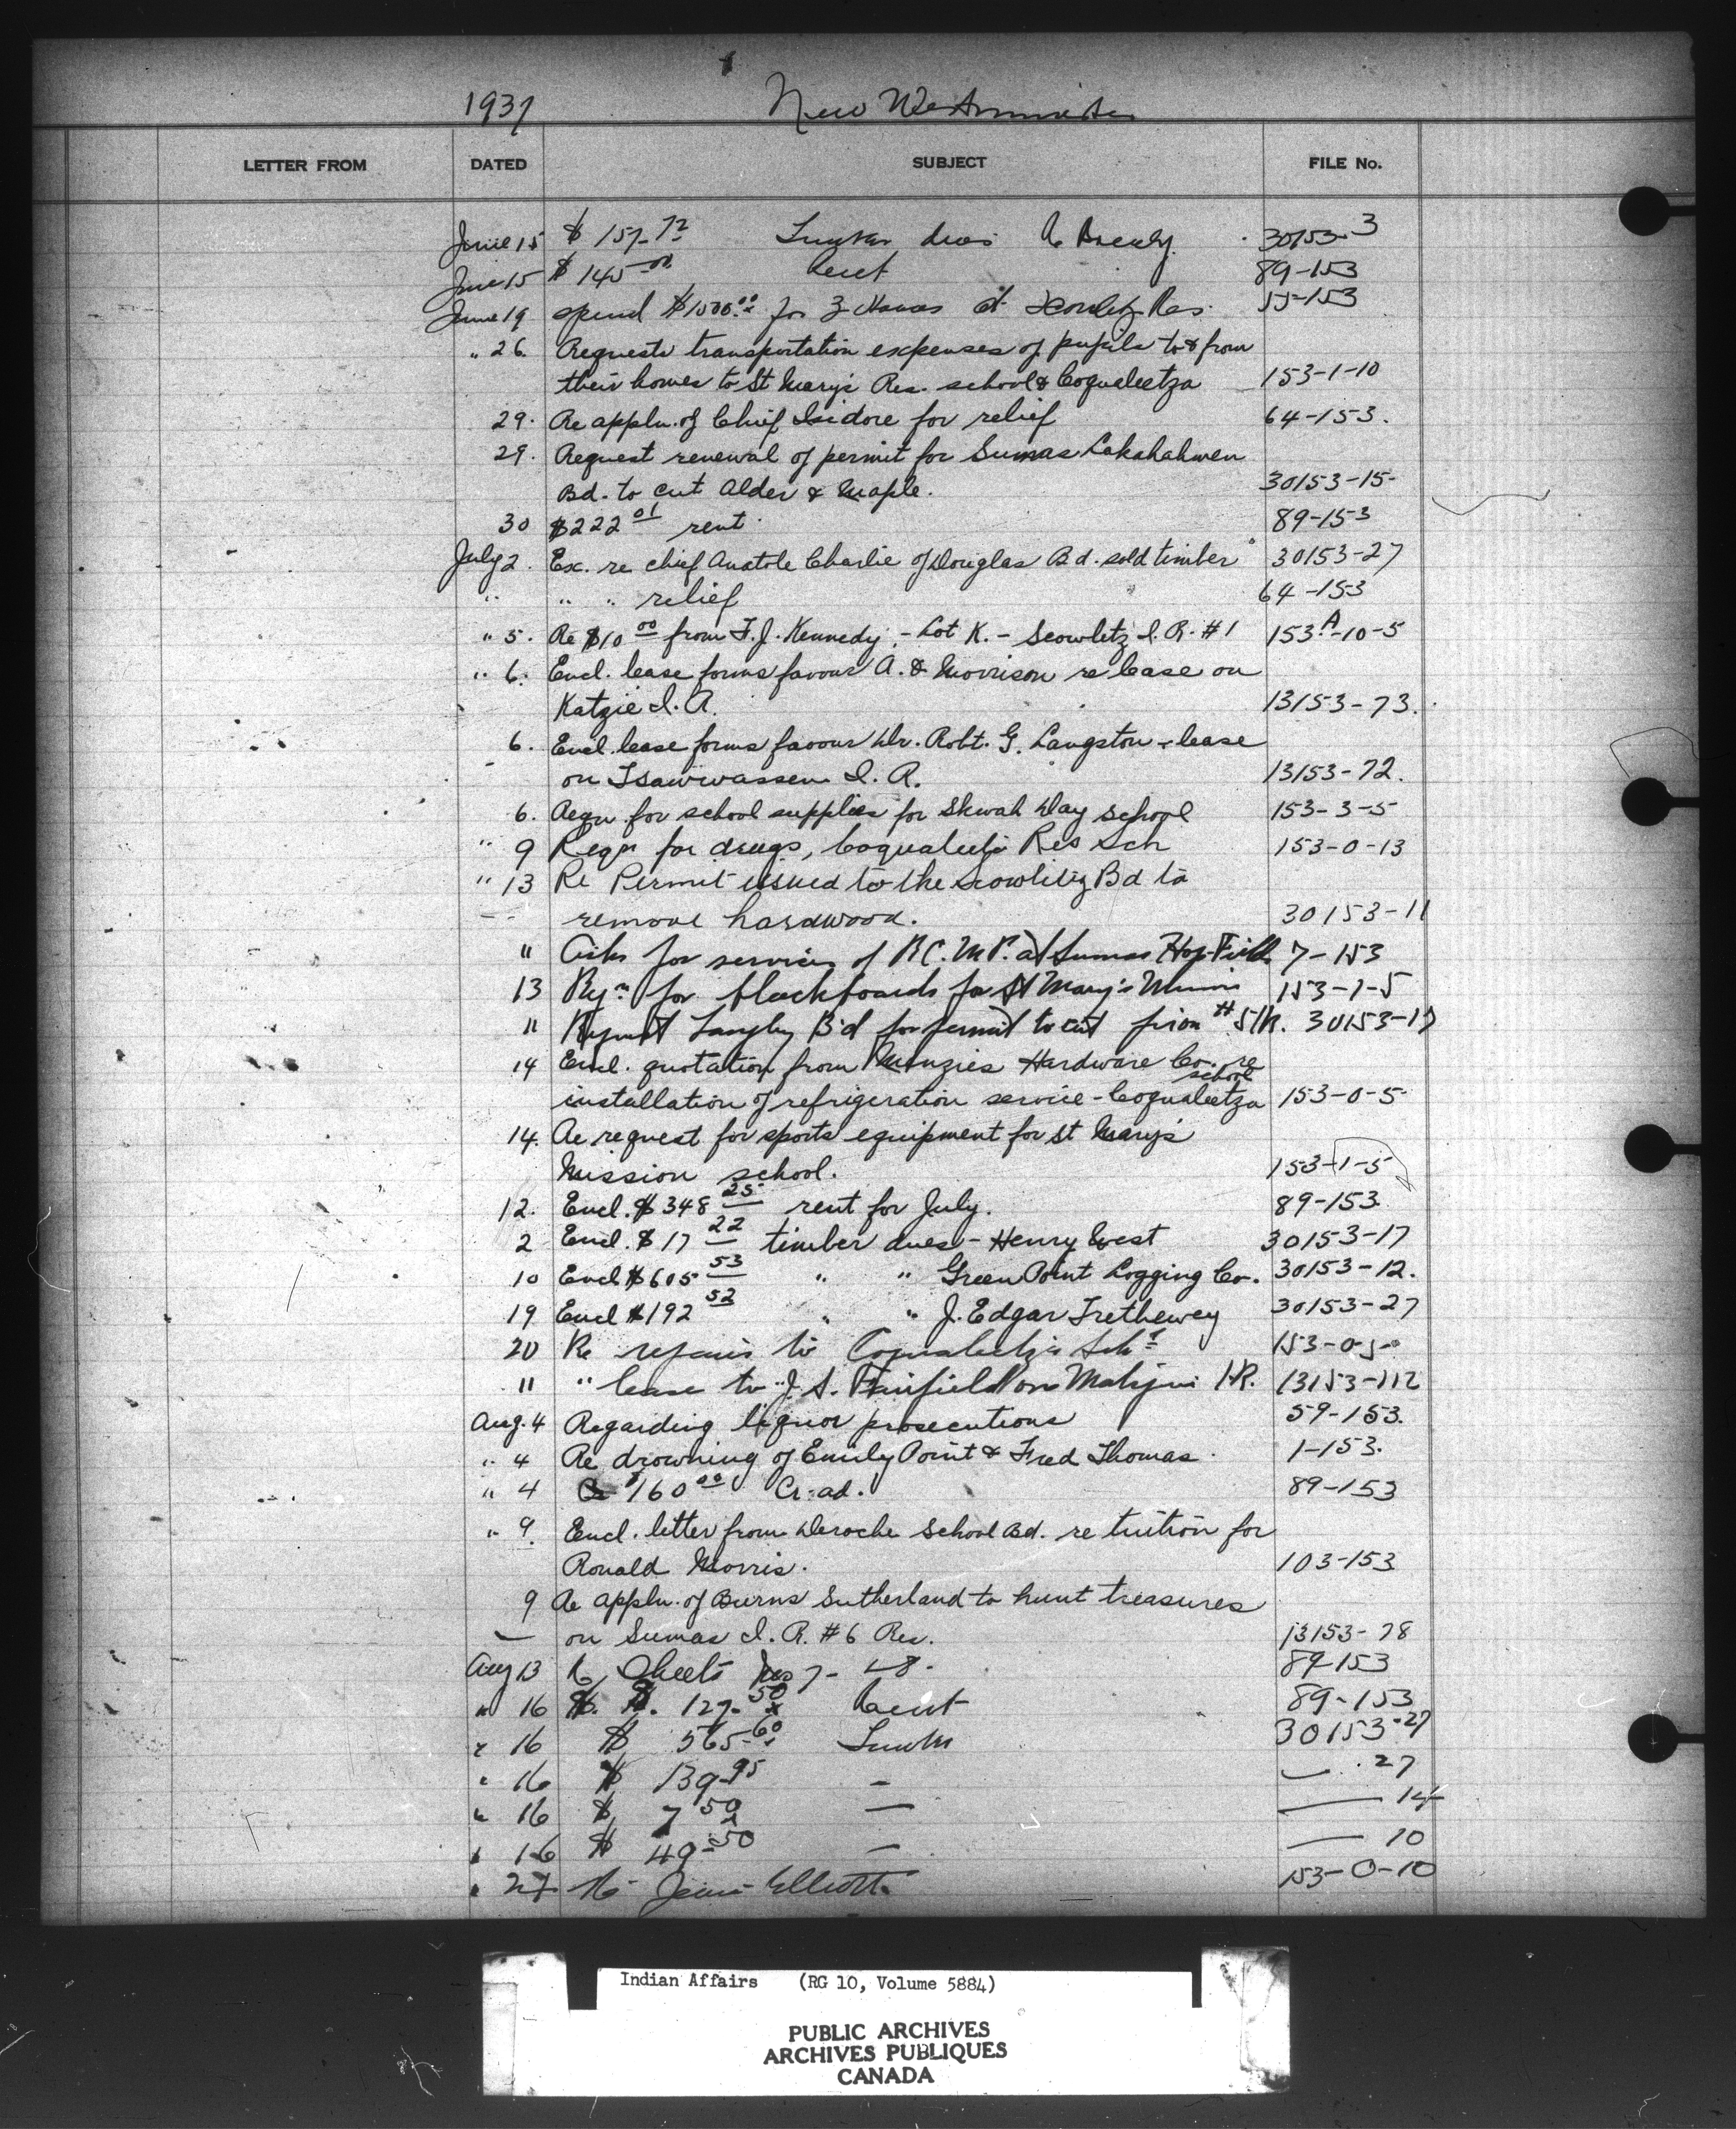 1937 New Westminster
LETTER FROM DATED SUBJECT FILE No.
June 15 $ 157.72 Timber dues 30153-3
June 15 $ 145.00 Rent 89-153
June 19 spend $1500.00 for 3 at Res. 55-153
" 26. Requests transportation expenses of pupils to & from
their homes to St Mary's Res. school & Coqualeetza 153-1-10
29. Re appln. of Chief Isidore for relief 64-153.
29. Request renewal of permit for Sumas Lakahahmen
Bd. to cut Alder & Maple. 30153-15-
30 $222 01 rent 89-153
July 2. Ex. re chief Anatole Charlie of Douglas Bd. sold timber 30153-27
" " " relief 64-153
" 5. Re $10 00 from F. J. Kennedy, - Lot K. - Scowlitz I. R. #1 153A-10-5
" 6. Encl. lease forms favour A. & Morrison re lease on
Katzie I. R. 13153-73.
6. Encl. lease forms favour Dr. Robt. G. Langston - lease
on Tsawwassen I. R. 13153-72.
6. Reqn for school supplies for Skwah Day School 153-3-5
" 9 Reqn for drugs, Coqualeetza Res Sch 153-0-13
" 13 Re Permit issued to the Scowlitz Bd to
remove hardwood. 30153-11
" Asks for services of R.C.M.P. at Sumas Hop-Field. 7-153
13 Rqn for blackboards for St Mary's Mission 153-1-5
" Request Langley Bd for permit to cut on #5 IR. 30153-17
14 Encl. quotation from Menzies Hardware Co. re
installation of refrigeration service - Coqualeetza school 153-0-5
14. Re request for sports equipment for St Mary's
Mission school. 153-1-5
12. Encl. $348 25 rent for July. 89-153
2 Encl. $17 22 timber dues - Henry West 30153-17
10 Encl $605 53 " " Green Point Logging Co. 30153-12.
19 Encl $192 52 " " J. Edgar Trethewey 30153-27
20 Re repairs to Coqualeetza Schl 153-0-5
" " lease to J. S. Fairfield on Matsqui I.R. 13153-112
Aug. 4 Regarding liquor prosecutions 59-153.
" 4 Re drowning of Emily Point & Fred Thomas. 1-153.
" 4 $160 00 Cr. ad. 89-153
" 9 Encl. letter from Deroche School Bd. re tuition for
Ronald Morris. 103-153
9 Re appln. of Burns Sutherland to hunt treasures
on Sumas I. R. #6 Res. 13153-78
Aug 13 Re Sheets Nos 7- 89-153
" 16 $ 127.50 Rent 89-153
" 16 $ 565.60 Timber 30153-27
" 16 $ 139.95 — — 27
" 16 $ 7 50 — — 14
" 16 $ 49.50 — — 10
" 27 Re Elliott 153-0-10
Indian Affairs (RG 10, Volume 5884)
PUBLIC ARCHIVES
ARCHIVES PUBLIQUES
CANADA